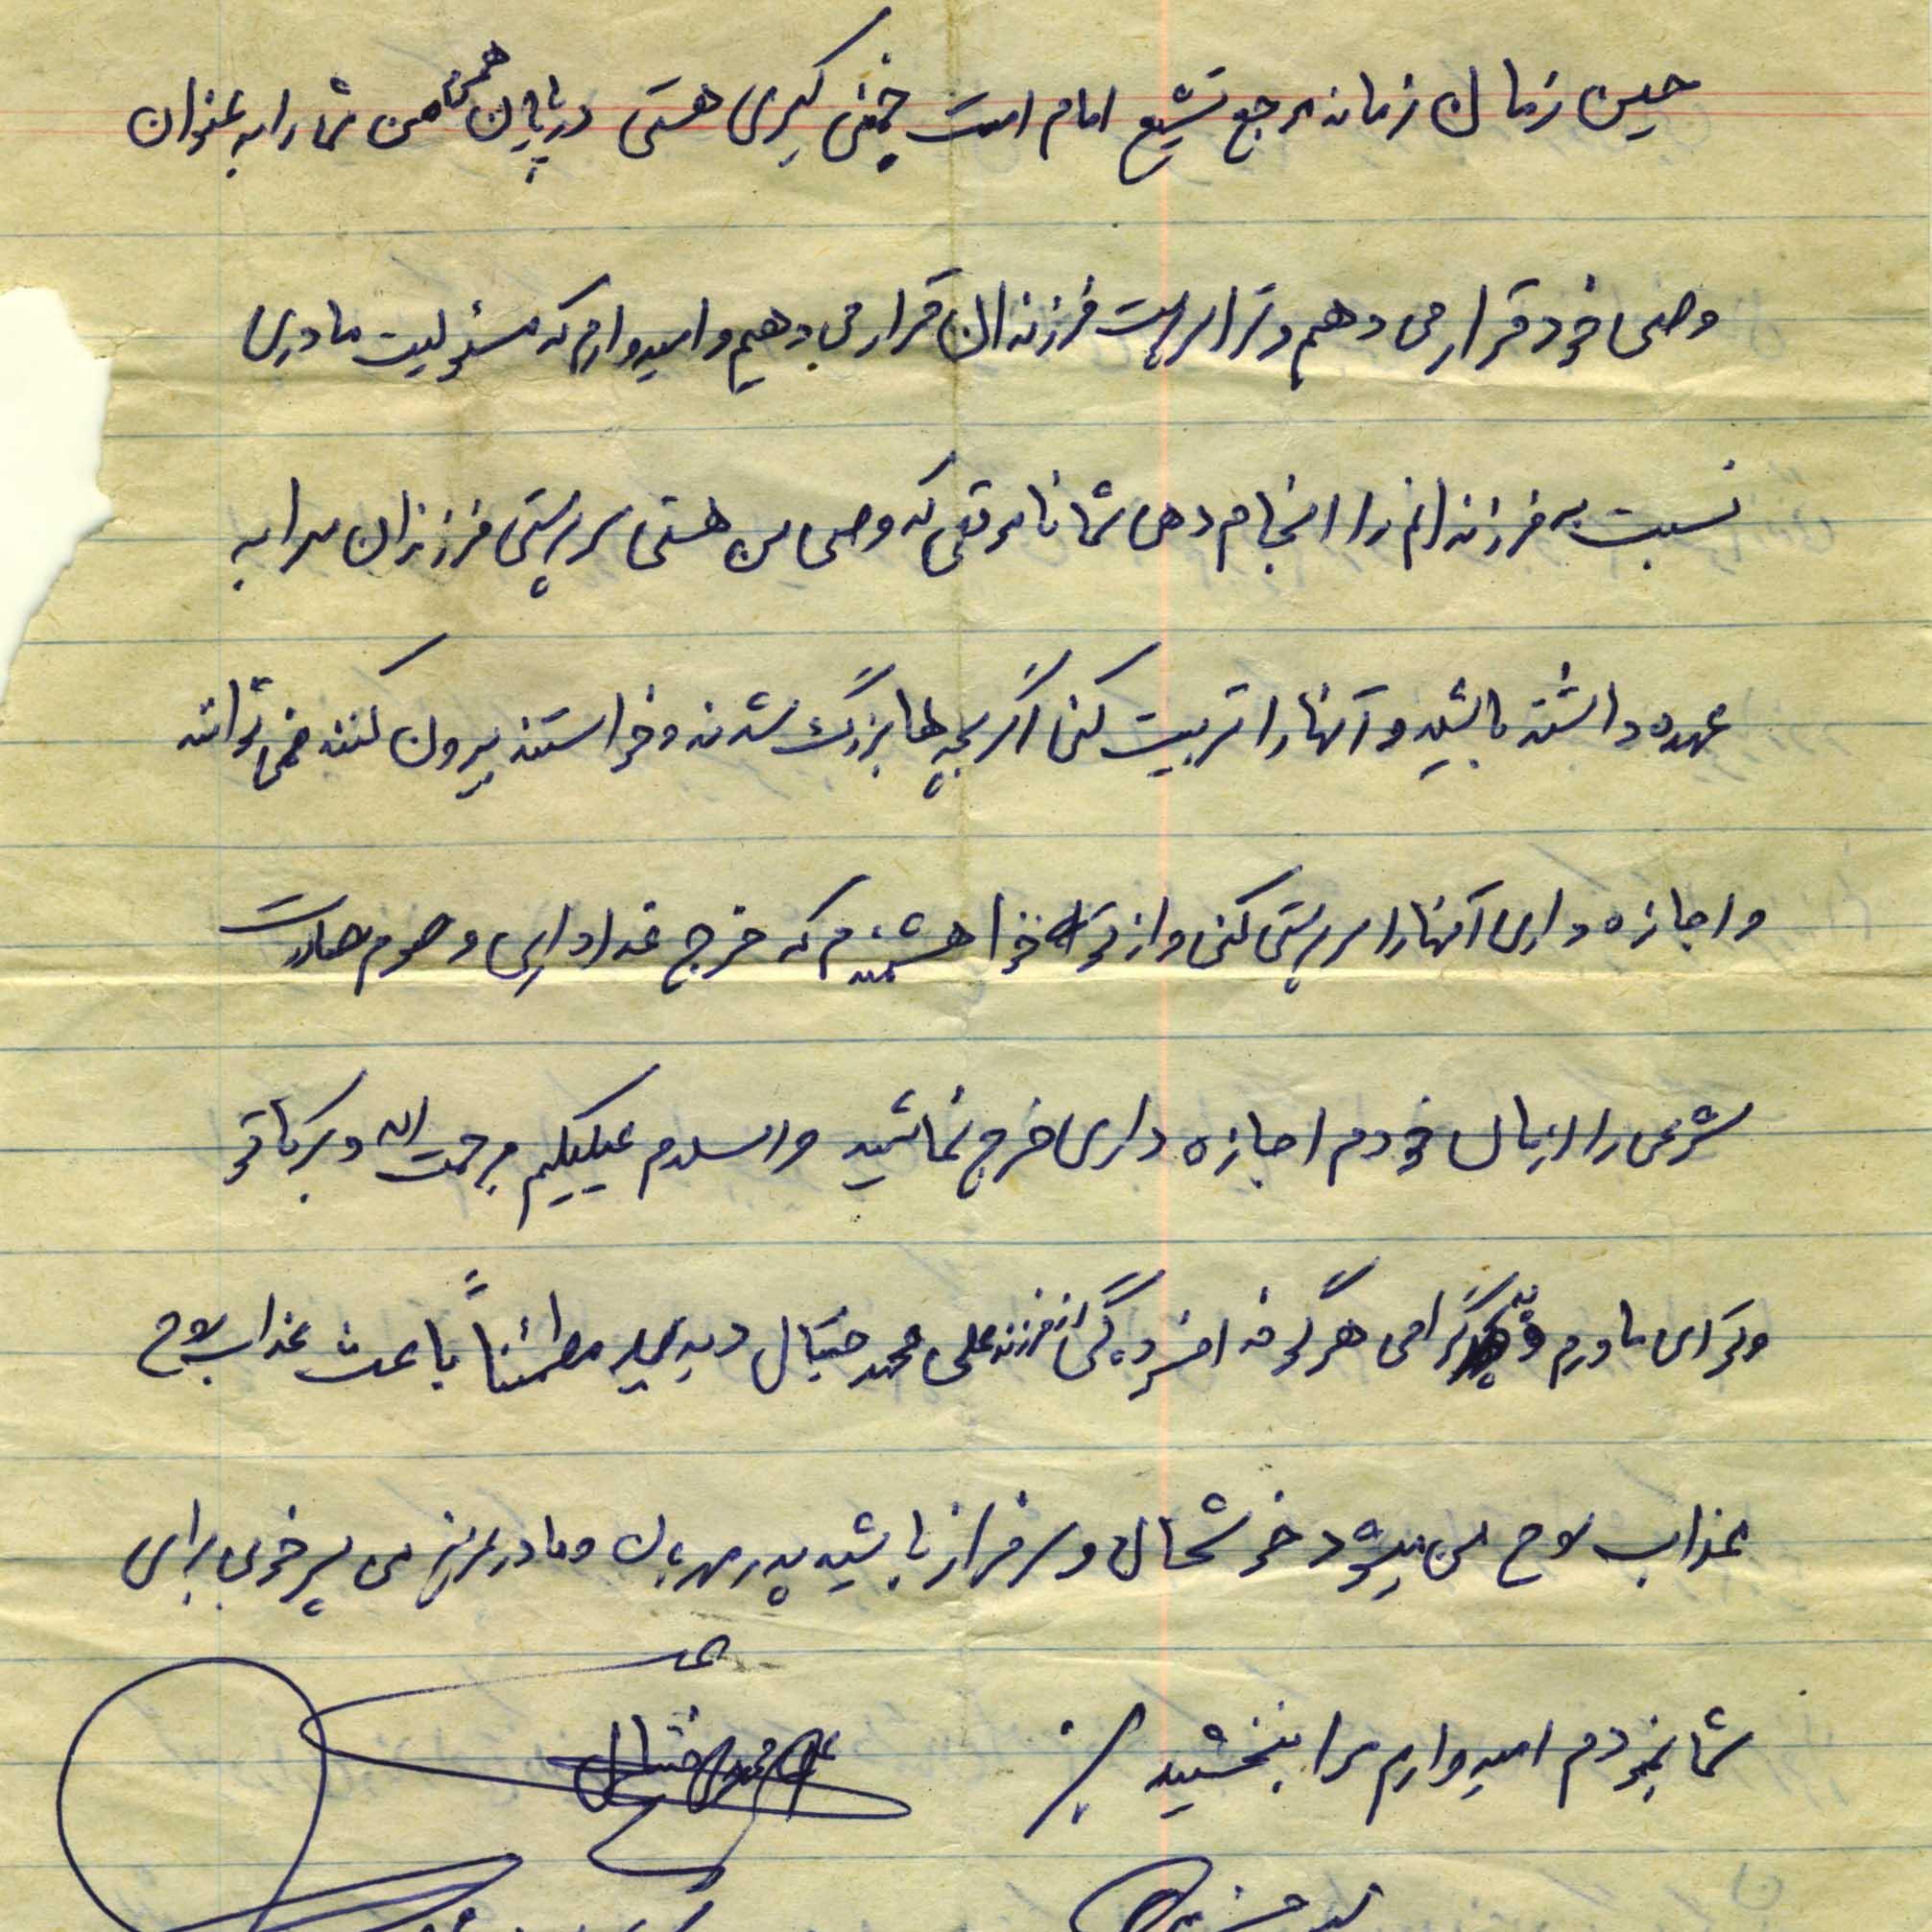 حسین زمان زمانه مرجع تشیع امام امت خمینی کبری هستی در پایان همسر من شما را به عنوان
وصی خود قرار می دهم و ترا سرپرست فرزندان قرار می دهیم و امیدوارم که مسئولیت مادری
نسبت به فرزندانم را انجام دهی شما تا موقعی که وصی من هستی سرپرستی فرزندان مرا به
عهده داشته باشید و آنها را تربیت کنی اگر بچه ها بزرگ شدند و خواستند بیرون کنند نمی توانند
و اجازه داری آنها را سرپرستی کنی و از تو خواهشمندم که خرج عزاداری و صوم صلات
شرعی را از مال خودم اجازه داری خرج نمائید والسلام علیکم و رحمت الله و برکاته
و برای مادرم و پدر گرامی هرگونه افسردگی از فرزند علی محمد خیتال دیدید مطمئناً باعث عذاب روح
عذاب روح من میشود خوشحال و سرفراز باشید پدر مهربان و مادر عزیز من پسر خوبی برای
شما نبودم امیدوارم مرا ببخشید
علی محمد خیتال